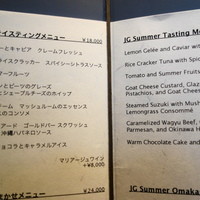 イスティングメニュー
¥18,000
ーとキャビア クレームフレッシュ
ラッカー スパイシーシトラスソース
アーフルーツ
ンとビーツのグレーズ
とシェーブルチーズのスイップ
ーム マッシュルームのエッセンス
スのコンソメ
アード ゴールドバー スクワッシュ
沖縄ハバネロソース
ョコラとキャラメルアイス
マリアージュワイン
+¥8,000
かせメニュー
¥24,000
JG Summer Tasting Me
Lemon Gelée and Caviar with
Rice Cracker Tuna with Spic
Tomato and Summer Fruits
Goat Cheese Custard, Glaz
Pistachio, and Goat Chees
Steamed Suzuki with Mush
Lemongrass Consommé
Caramelized Wagyu Beef,
Parmesan, and Okinawa H
Warm Chocolate Cake and
JG Summer Omaka